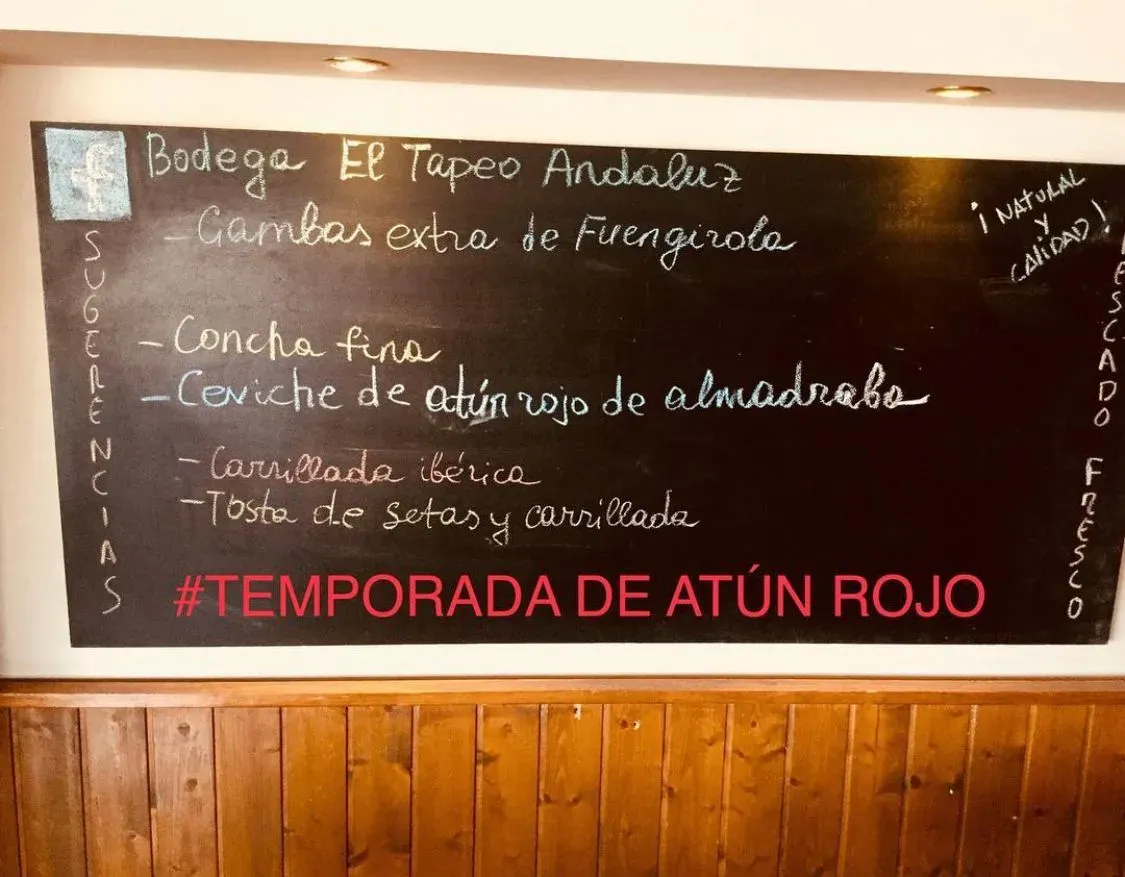 f
Bodega El Tapeo Andaluz
- Gambas extra de Fuengirola
¡NATURAL
Y
CALIDAD!
- Concha fina
- Ceviche de atún rojo de almadraba
- Carrillada ibérica
- Tosta de setas y carrillada
#TEMPORADA DE ATÚN ROJO
SUGERENCIAS
PESCADO FRESCO